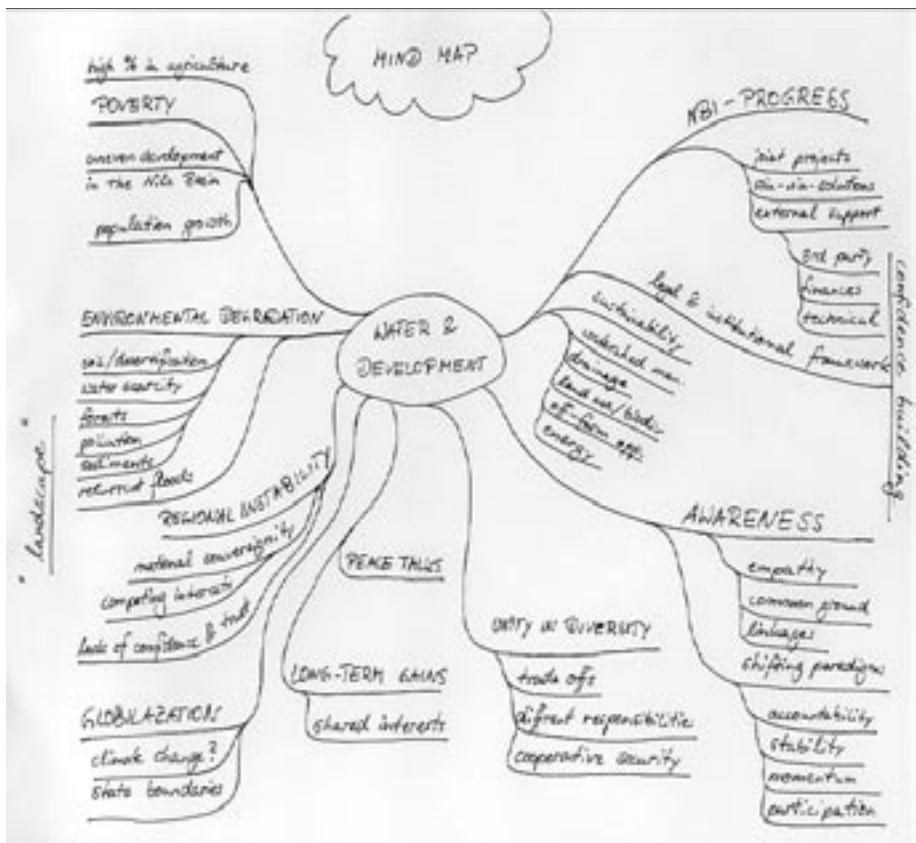 MIND MAP
high % in agriculture
POVERTY
uneven development
in the Nile Basin
population growth
ENVIRONMENTAL DEGRADATION
soil/desertification
water scarcity
forests
pollution
sediments
recurrent floods
"landscape"
REGIONAL INSTABILITY
national sovereignity
competing interests
lack of confidence & trust
GLOBILAZATION
climate change?
state boundaries
WATER &
DEVELOPMENT
PEACE TALKS
LONG-TERM GAINS
shared interests
UNITY IN DIVERSITY
trade offs
difrent responsibilities
cooperative security
NBI - PROGRESS
joint projects
win-win-solutions
external support
3rd party
finances
technical
legal & institutional framework
sustainability
watershed man.
drainage
land use/
off-farm opp.
energy
confidence building
AWARENESS
empathy
common ground
linkages
shifting paradigms
accountability
stability
momentum
participation